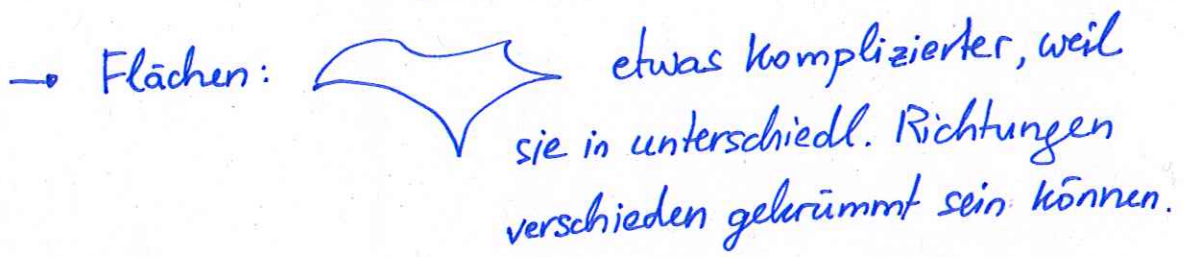 → Flächen: etwas komplizierter, weil
sie in unterschiedl. Richtungen
verschieden gekrümmt sein können.